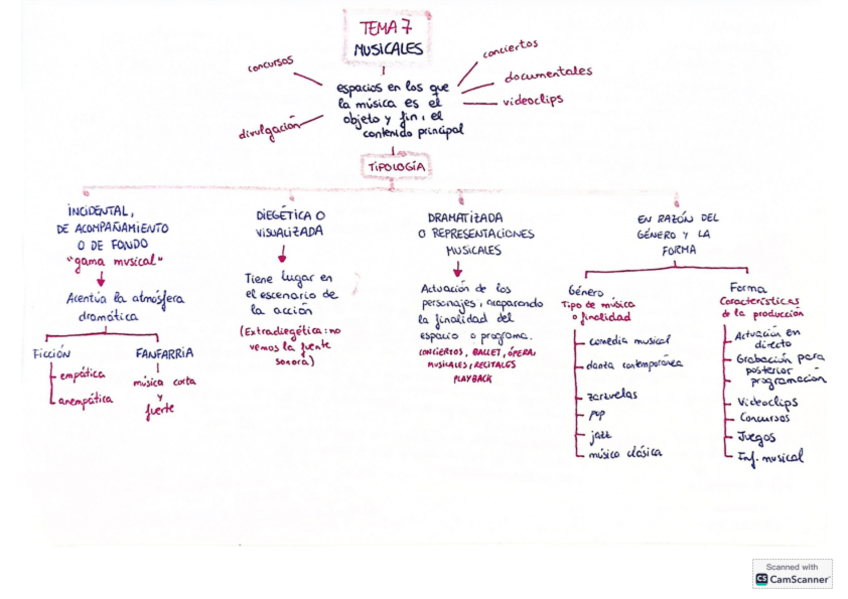 TEMA 7
MUSICALES
concursos
divulgación
conciertos
documentales
videoclips
espacios en los que
la música es el
objeto y fin, el
contenido principal
TIPOLOGÍA
INCIDENTAL,
DE ACOMPAÑAMIENTO
O DE FONDO
"gama musical"
Acentúa la atmósfera
dramática
FICCIÓN
empática
anempática
FANFARRIA
música corta
y
fuerte
DIEGÉTICA O
VISUALIZADA
Tiene lugar en
el escenario de
la acción
(Extradiegética: no
vemos la fuente
sonora)
DRAMATIZADA
O REPRESENTACIONES
MUSICALES
Actuación de los
personajes, acaparando
la finalidad del
espacio o programa.
CONCIERTOS, BALLET, ÓPERA,
MUSICALES, RECITALES
PLAYBACK
EN RAZÓN DEL
GÉNERO Y LA
FORMA
Género
Tipo de música
o finalidad
comedia musical
danza contemporánea
zarzuelas
pop
jazz
música clásica
Forma
Características
de la producción
Actuación en
directo
Grabación para
posterior
programación
Videoclips
Concursos
Juegos
Inf. musical
Scanned with
CS CamScanner